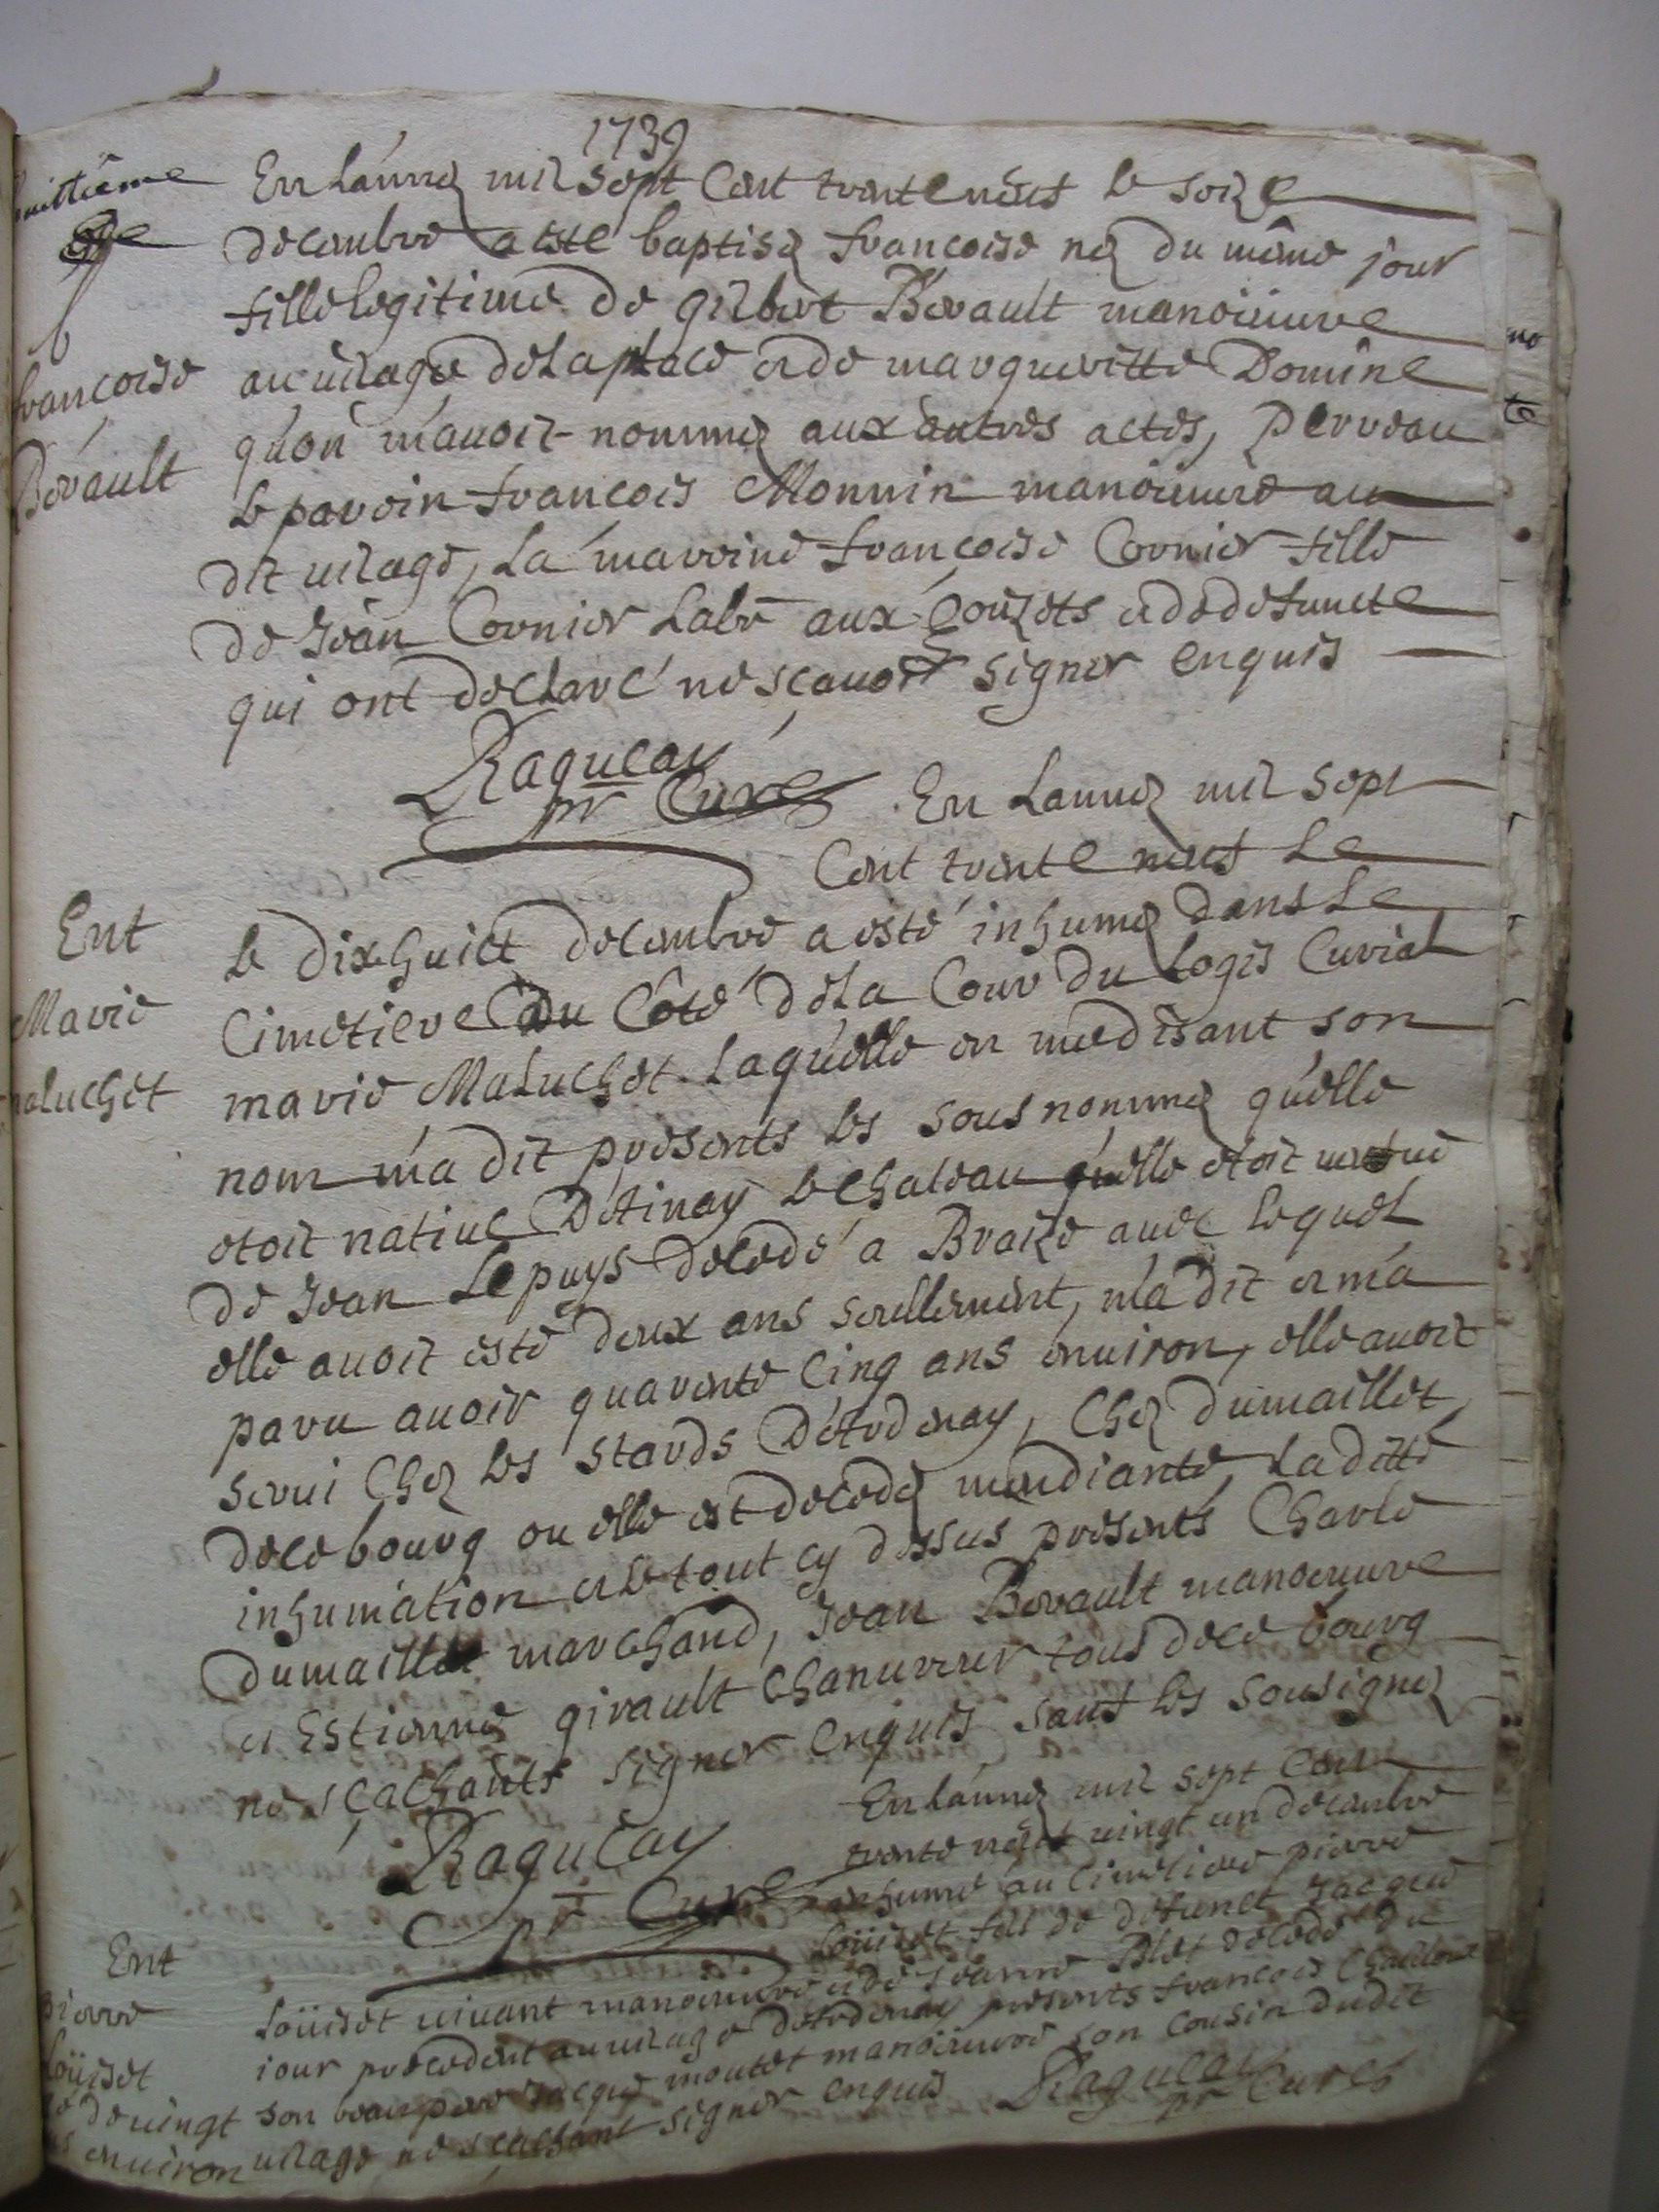 1739
huittième
En Lannee mil sept Cent trente neuf le seize
decembre a esté baptisee francoise nee du même jour
fille legitime de gilbert Berault manoeuure
francoise
au uilage de La place et de margueritte Domine
qu'on m'auoit nommee aux autres actes, perreau
Berault
le parein francois Monnin manoeuure au
dit uilage, La mareine françoise Cornier fille
de Jean Cornier Labr aux Couzets et de defuncte
qui ont declaré ne scauoir signer enquis
Ragueau
pr Curé
En Lannee mil sept
Cent trente neuf Le
Ent
le dix huict decembre a esté inhumee dans Le
Marie
Cimetiere du Côté de La Cour du Logis Curial
maluchet
marie Maluchet Laquelle en me disant son
nom m'a dit presents les sous nommez quelle
etoit natiue D'etinay le chateau quelle etoit uefue
de Jean Lepuys decedé a Braize auec lequel
elle auoit esté deux ans seullement, m'a dit et m'a
paru auoir quarente Cinq ans enuiron, elle auoit
serui Chez les stards D'etrdenay, Chez dumaillet
de ce bourg ou elle est decedee mendiante, La ditte
inhumation et le tout cy dessus presents Charle
dumaillet marchand, Jean Berault manoeuure
et Estienne girault Chanureur tous de ce bourg
ne sçachants signer enquis sauf les sousignez
Ragueau
pr Curé
En Lannee mil sept Cent
trente neuf uingt un decembre
inhumé au Cimetiere pierre
Loüiset fils de defunct Jacque
Ent
Loüiset uiuant manoeuure et de Jeanne Blet decedé du
pierre
iour precedent au uilage d'etrdenay presents francois
Loüiset
son beau pere Jacque moutet manoeuure son Cousin dudit
de uingt
uilage ne sçachant signer enquis Ragueau
enuiron
pr Curé